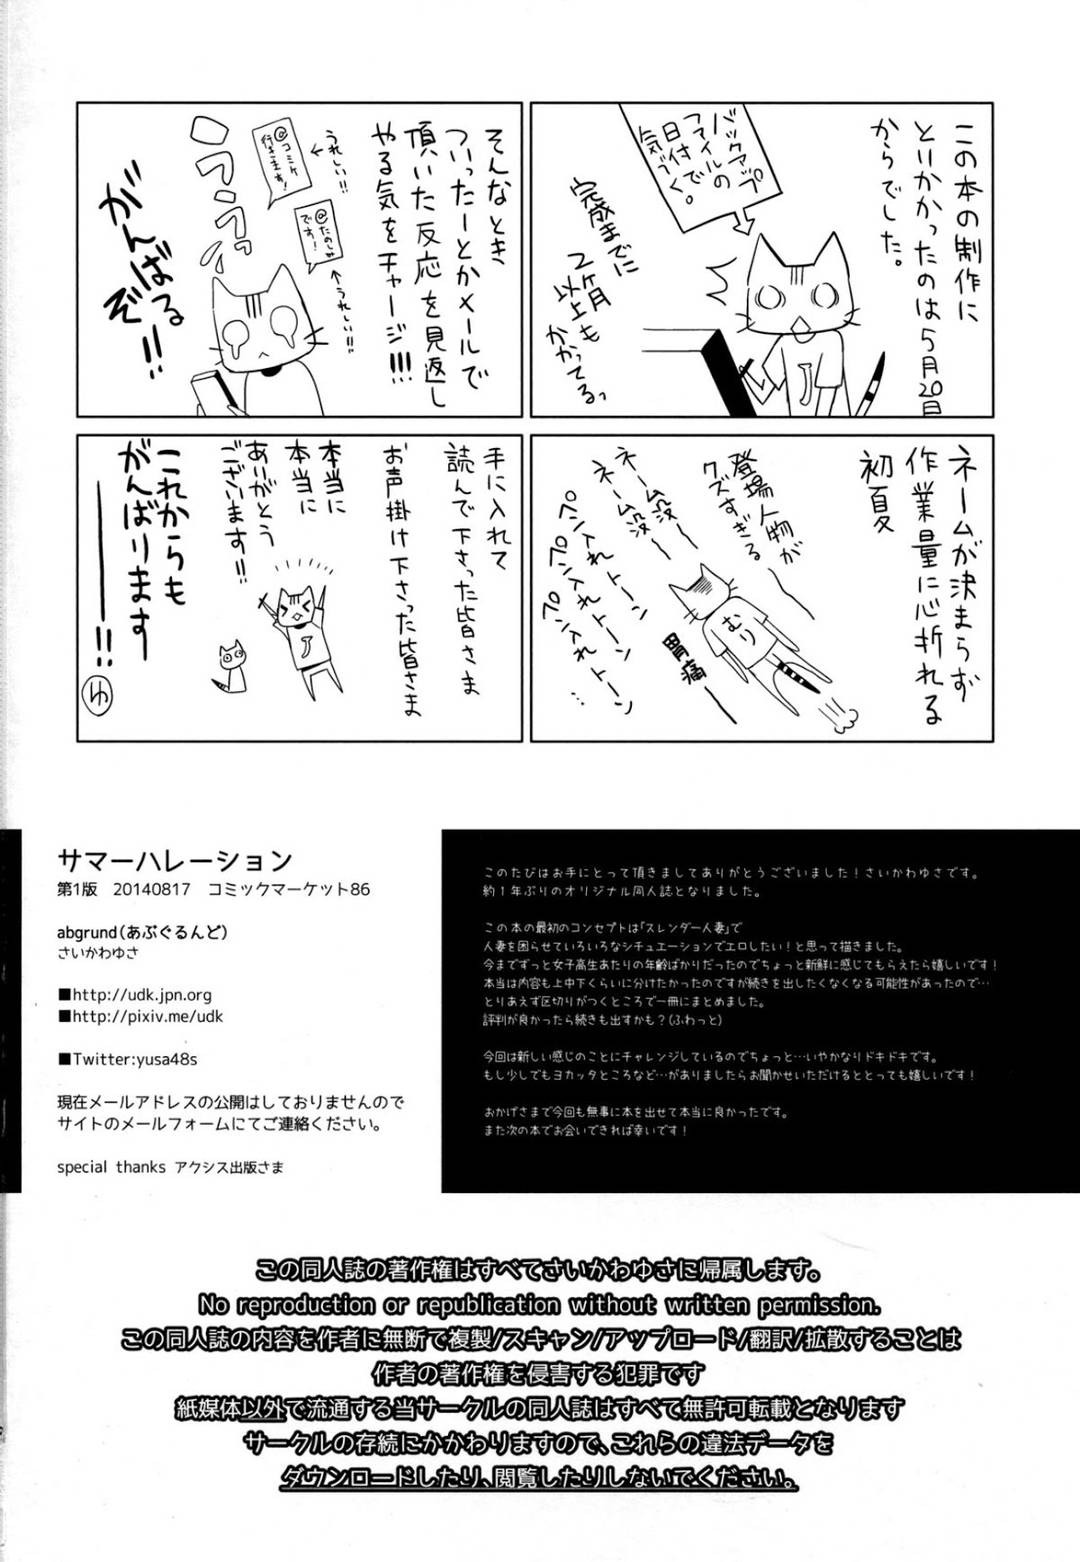 この本の制作に
といかかったのは5月20日
からでした。
バックアップ
ファイルの
日付で
気づく。
完成までに
2ヶ月
以上も
かかってるっ
そんなとき
ついったーとかメールで
頂いた反応を見返し
やる気をチャージ!!!
うれしい!!
@コミケ
行きます!
@たのしみ
です!
うれしい!!
うううっ
がんばる
ぞ!!
ネームが決まらず
作業量に心折れる
初夏
登場人物が
クズすぎる
ネーム没〜
ネーム没〜
ペン入れトーン
ペン入れトーン
ペン入れトーン…
むり
胃痛
手に入れて
読んで下さった皆さま
お声掛け下さった皆さま
本当に
本当に
ありがとう
ございます!!
これからも
がんばります
――!!
ゆ
サマーハレーション
第1版 20140817 コミックマーケット86
abgrund(あぶぐるんど)
さいかわゆさ
■http://udk.jpn.org
■http://pixiv.me/udk
■Twitter:yusa48s
現在メールアドレスの公開はしておりませんので
サイトのメールフォームにてご連絡ください。
special thanks アクシス出版さま
このたびはお手にとって頂きましてありがとうございました!さいかわゆさです。
約1年ぶりのオリジナル同人誌となりました。
この本の最初のコンセプトは「スレンダー人妻」で
人妻を困らせていろいろなシチュエーションでエロしたい!と思って描きました。
今までずっと女子高生あたりの年齢ばかりだったのでちょっと新鮮に感じてもらえたら嬉しいです!
本当は内容も上中下くらいに分けたかったのですが続きを出したくなくなる可能性があったので…
とりあえず区切りがつくところで一冊にまとめました。
評判が良かったら続きも出すかも?(ふわっと)
今回は新しい感じのことにチャレンジしているのでちょっと…いやかなりドキドキです。
もし少しでもヨカッタところなど…がありましたらお聞かせいただけるととっても嬉しいです!
おかげさまで今回も無事に本を出せて本当に良かったです。
また次の本でお会いできれば幸いです!
この同人誌の著作権はすべてさいかわゆさに帰属します。
No reproduction or republication without written permission.
この同人誌の内容を作者に無断で複製/スキャン/アップロード/翻訳/拡散することは
作者の著作権を侵害する犯罪です
紙媒体以外で流通する当サークルの同人誌はすべて無許可転載となります
サークルの存続にかかわりますので、これらの違法データを
ダウンロードしたり、閲覧したりしないでください。